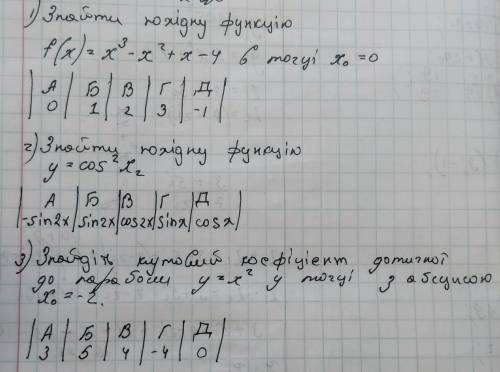 1) Знайти похідну функцію
f(x) = x³ - x² + x - 4 в точці x₀ = 0
| А | Б | В | Г | Д |
| 0 | 1 | 2 | 3 | -1 |
2) Знайти похідну функцію
y = cos²x₂
| А | Б | В | Г | Д |
| -sin2x | sin2x | cos2x | sinx | cosx |
3) Знайдіть кутовий коефіцієнт дотичної
до параболи y = x² у точці з абсцисою
x₀ = -2.
| А | Б | В | Г | Д |
| 3 | 5 | 4 | -4 | 0 |